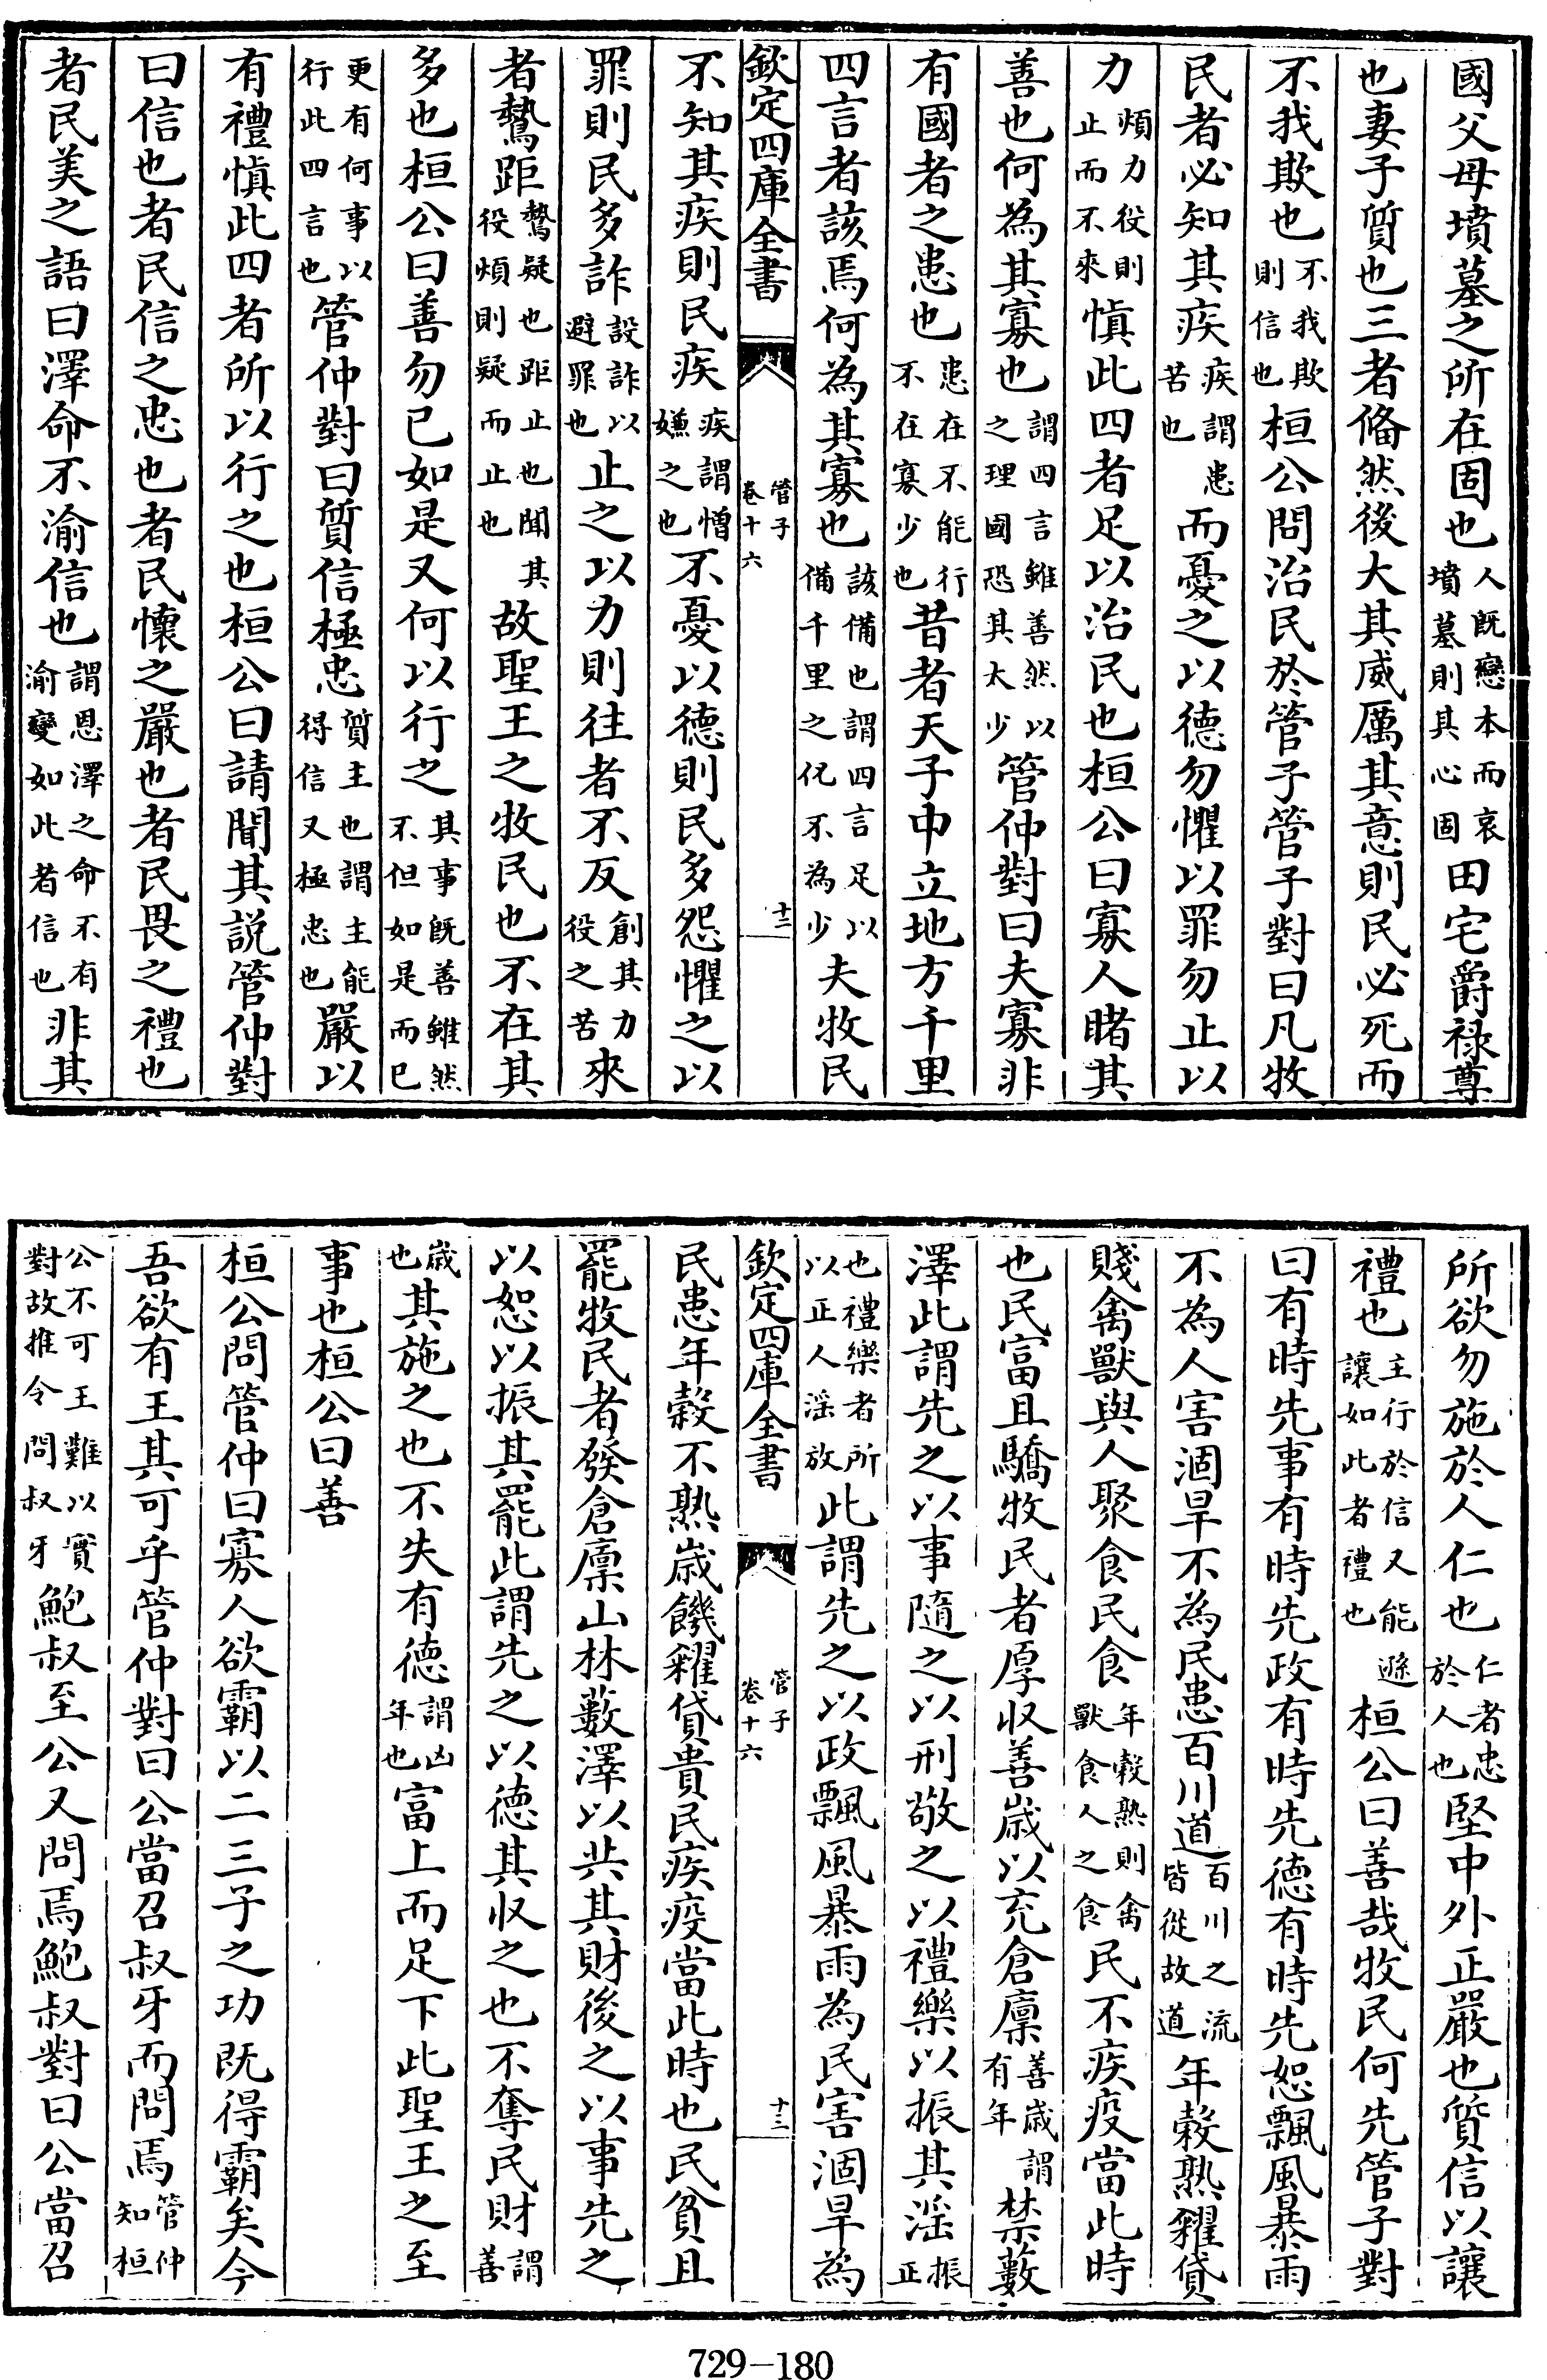 國父母墳墓之所在固也人既戀本而哀墳墓則其心固田宅爵祿尊
也妻子質也三者備然後大其威厲其意則民必死而
不我欺也不我欺則信也桓公問治民於管子管子對曰凡牧
民者必知其疾疾謂患苦也而憂之以德勿懼以罪勿止以
力煩力役則止而不來慎此四者足以治民也桓公曰寡人睹其
善也何為其寡也謂四言雖善然以之理國恐其大少管仲對曰夫寡非
有國者之患也患在不能行不在寡少也昔者天子中立地方千里
四言者該焉何為其寡也該備也謂四言足以備千里之化不為少夫牧民
欽定四庫全書 管子 卷十六 十二
不知其疾則民疾疾謂憎嫌之也不憂以德則民多怨懼之以
罪則民多詐設詐以避罪也止之以力則往者不反創其力役之苦來
者鷙距鷙疑也距止也聞其役煩則疑而止也故聖王之牧民也不在其
多也桓公曰善勿已如是又何以行之其事既善雖然不但如是而已
更有何事以行此四言也管仲對曰質信極忠質主也謂主能得信又極忠也嚴以
有禮慎此四者所以行之也桓公曰請聞其說管仲對
曰信也者民信之忠也者民懷之嚴也者民畏之禮也
者民美之語曰澤命不渝信也謂恩澤之命不有渝變如此者信也非其
所欲勿施於人仁也仁者忠於人也堅中外正嚴也質信以讓
禮也主行於信又能遜讓如此者禮也桓公曰善哉牧民何先管子對
曰有時先事有時先政有時先德有時先恕飄風暴雨
不為人害涸旱不為民患百川道百川之流皆從故道年穀熟糴貸
賤禽獸與人聚食民食年穀熟則禽獸食人之食民不疾疫當此時
也民富且驕牧民者厚收善歲以充倉廩善歲謂有年禁藪
澤此謂先之以事隨之以刑敬之以禮樂以振其淫振正
也禮樂者所以正人淫放此謂先之以政飄風暴雨為民害涸旱為
欽定四庫全書 管子 卷十六 十三
民患年穀不熟歲饑糴貸貴民疾疫當此時也民貧且
罷牧民者發倉廩山林藪澤以共其財後之以事先之
以恕以振其罷此謂先之以德其收之也不奪民財謂善
歲也其施之也不失有德謂凶年也富上而足下此聖王之至
事也桓公曰善
桓公問管仲曰寡人欲霸以二三子之功既得霸矣今
吾欲有王其可乎管仲對曰公當召叔牙而問焉管仲知桓
公不可王難以實對故推令問叔牙鮑叔至公又問焉鮑叔對曰公當召
729-180